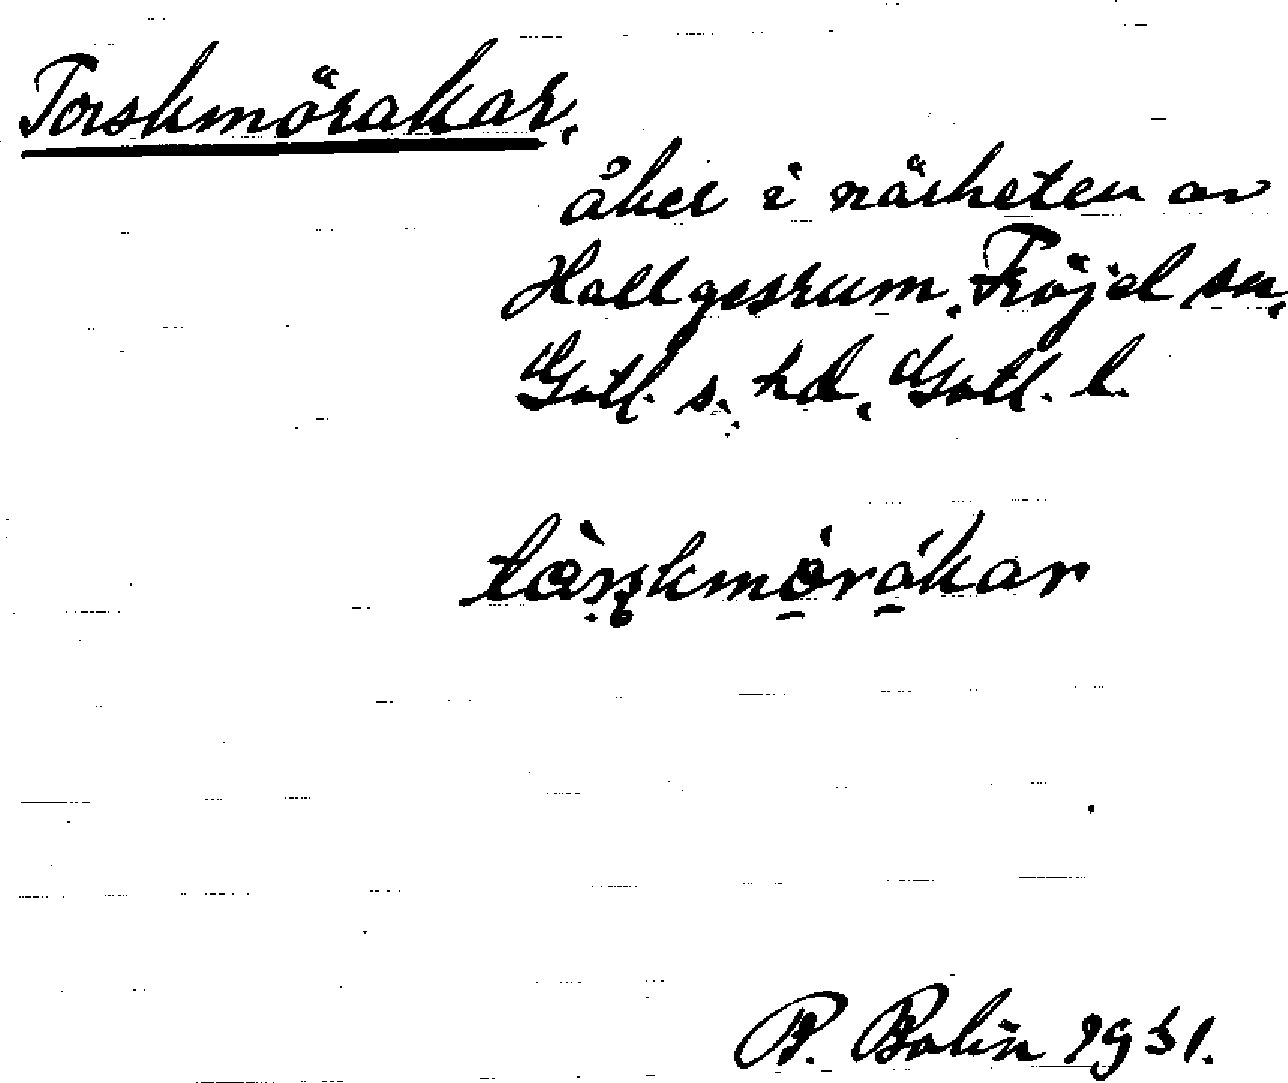 Torskmöråkar.
åker i närheten av
Hallgesrum, Fröjel sn,
Gotl. s. hd, Gotl. l.
tòrskmörákar
B. Bolin 1931.